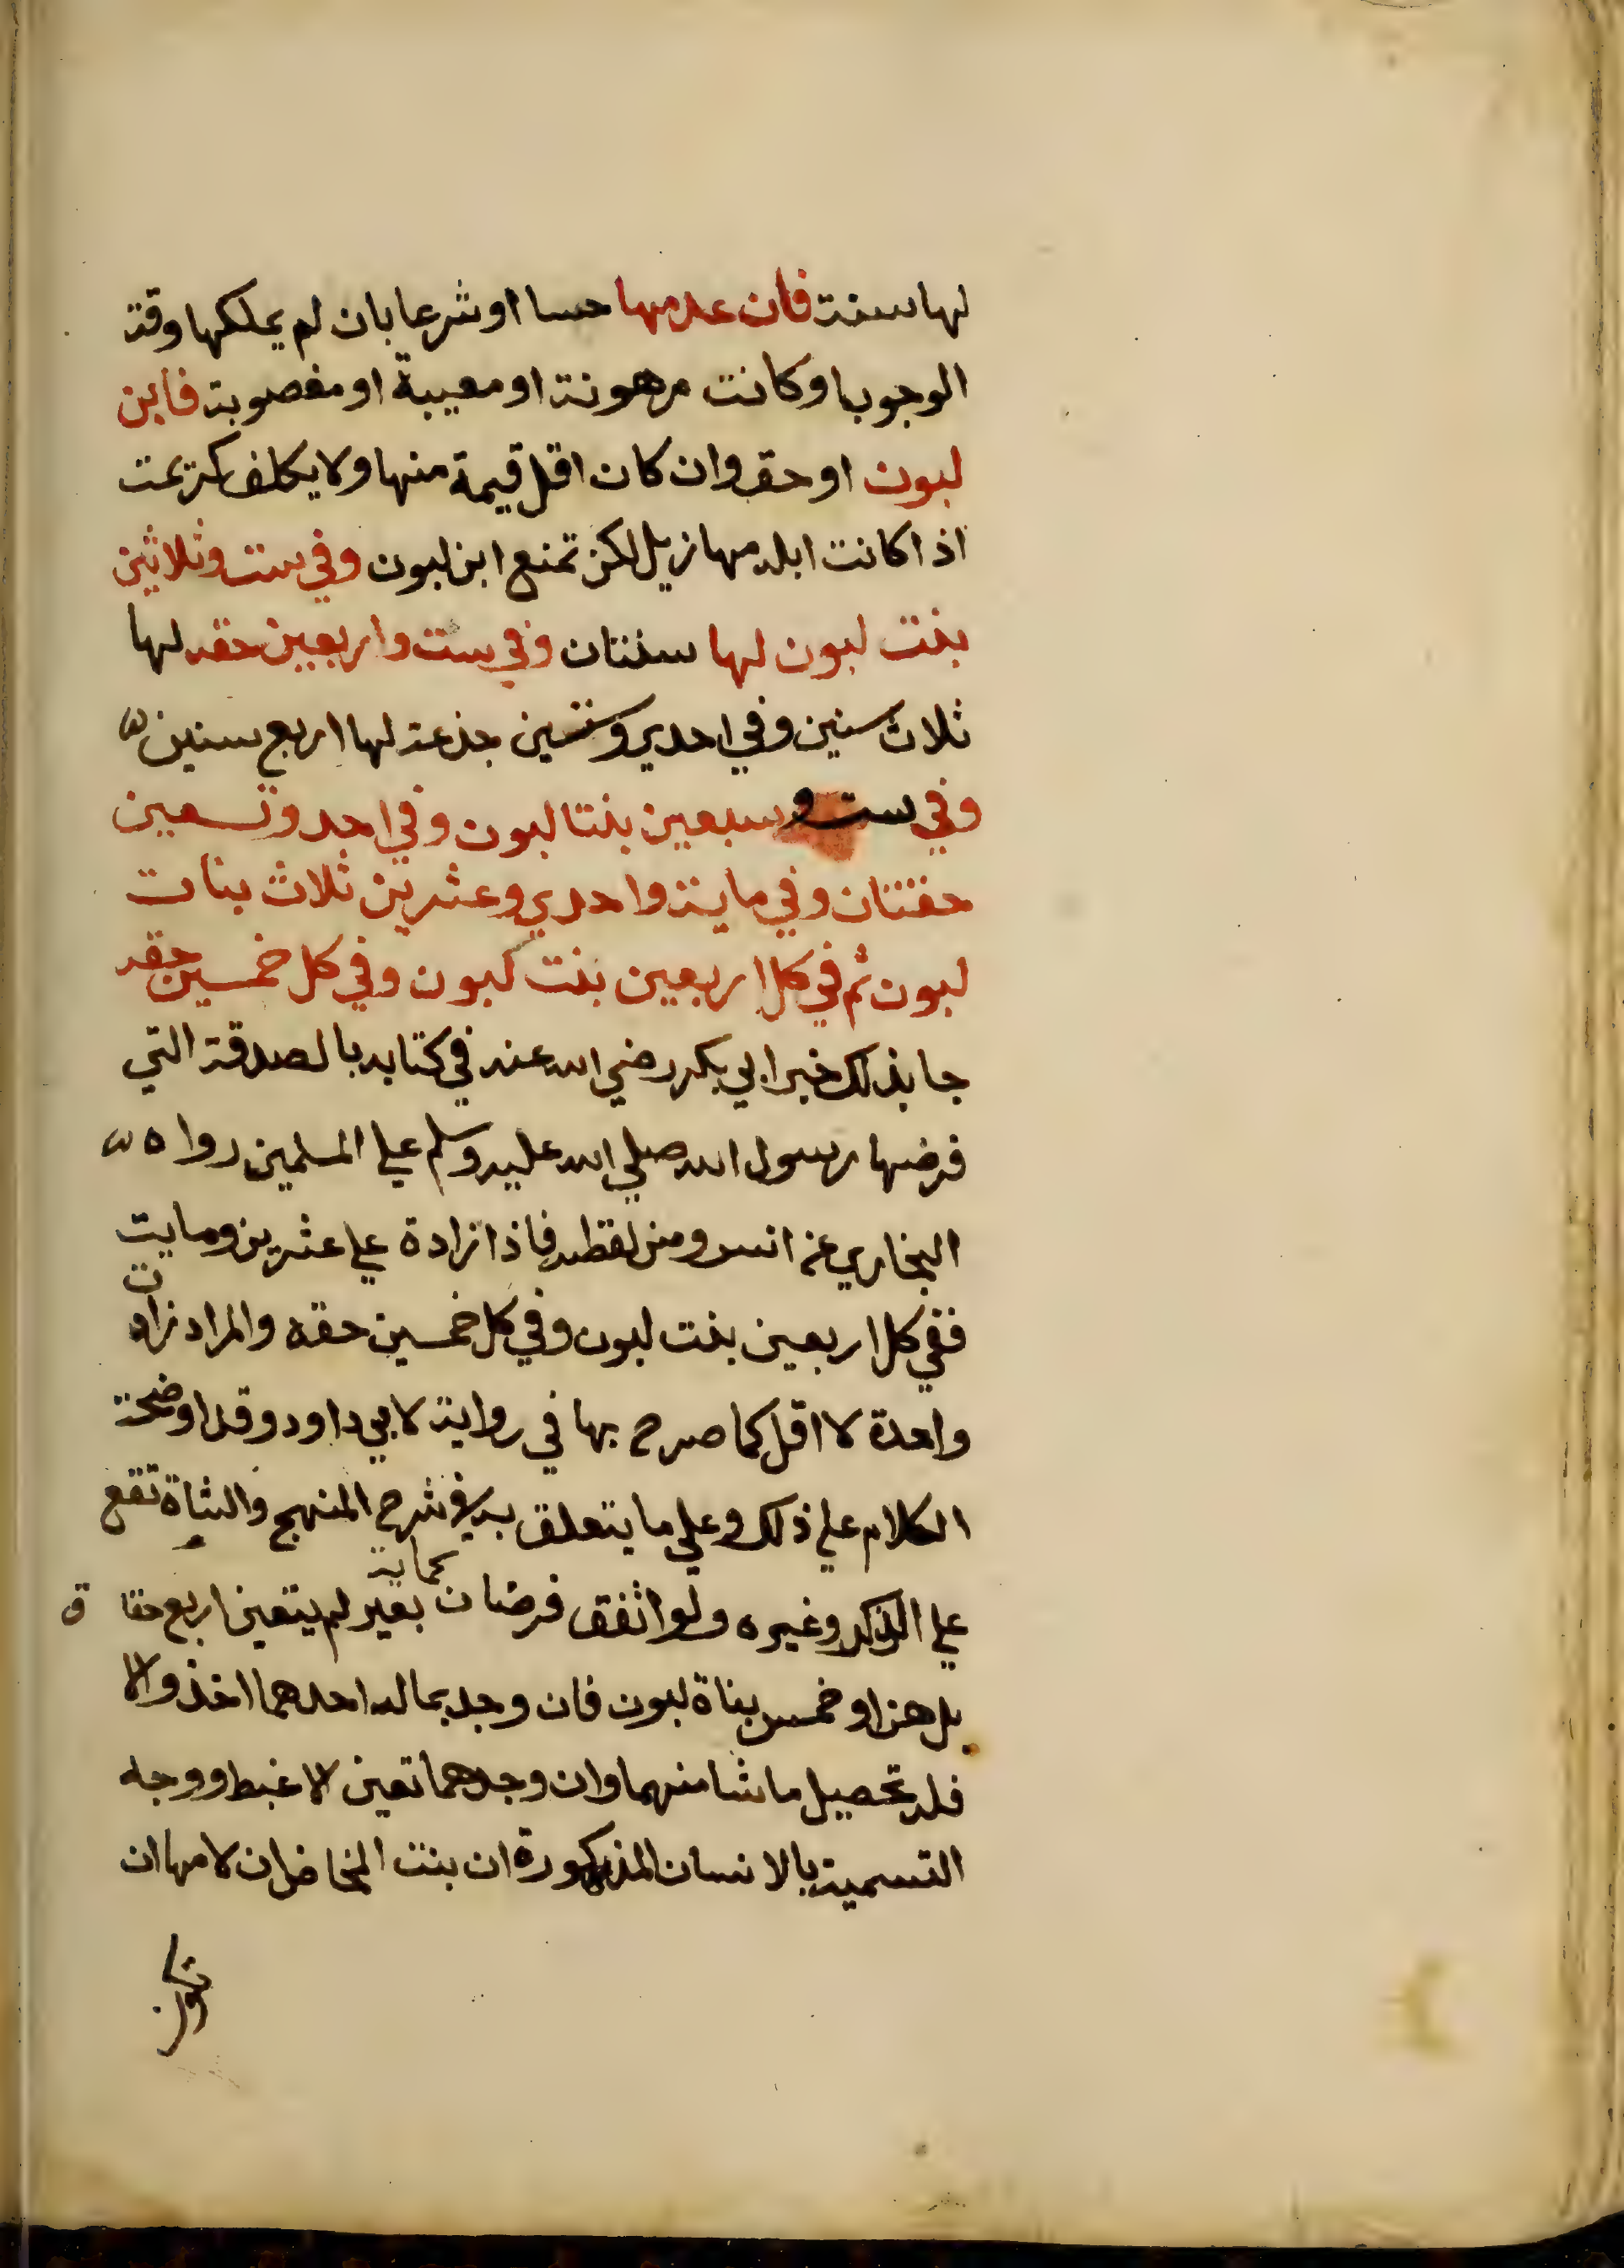 لها سنة فان عدمها حسا او شرعا بان لم يملكها وقت
الوجوب او كانت مرهونة او معيبة او مغصوبة فابن
لبون او حق وان كان اقل قيمة منها ولا يكلف كريمت
اذا كانت ابله مهازيل لكن تمنع ابن لبون وفي ست وثلاثين
بنت لبون لها سنتان وفي ست واربعين حقه لها
ثلاث سنين وفي احدي وستين جذعة لها اربع سنين
وفي ست وسبعين بنتا لبون وفي احد وتسعين
حقتان وفي ماية واحدي وعشرين ثلاث بنات
لبون ثم في كل اربعين بنت لبون وفي كل خمسين حقه
جا بذلك خبر ابي بكر رضي الله عنه في كتابه بالصدقة التي
فرضها رسول الله صلي الله عليه وسلم علي المسلمين رواه
البخاري عن انس ومن لفظه فاذا زادة علي عشرين ومايت
ففي كل اربعين بنت لبون وفي كل خمسين حقه والمراد زادت
واحدة لا اقل كما صرح بها في رواية لابي داود وقد اوضحت
الكلام علي ذلك وعلي ما يتعلق به في شرح المنهج والشاة تقع
علي الذكر وغيره ولو اتفق فرضان كماية بعير لم يتعين اربع حقاق
بل هن او خمس بناة لبون فان وجد بماله احدهما اخذ والا
فله تحصيل ما شا منهما وان وجدهما تعين الاغبط ووجه
التسمية بالاسنان المذكورة ان بنت المخاض ان لامها ان